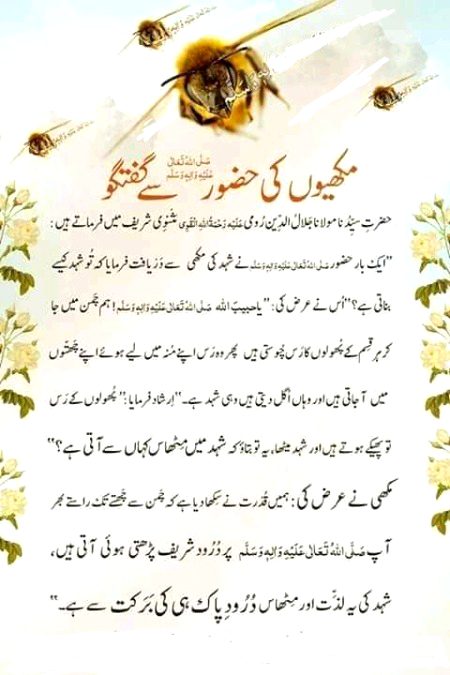 مکھیوں کی حضور صَلَّی اللہُ تَعَالٰی عَلَیْہِ وَاٰلِہٖ وَسَلَّم سے گفتگو
حضرتِ سیِّدُنا مولانا جَلالُ الدِّین رُومی عَلَیْہِ رَحْمَۃُ اللہِ الْقَوِی مَثْنَوی شریف میں فرماتے ہیں :
”ایک بار حضور صَلَّی اللہُ تَعَالٰی عَلَیْہِ وَاٰلِہٖ وَسَلَّم نے شہد کی مکھی سے دَریافت فرمایا کہ تُو شہد کیسے
بناتی ہے؟“ اُس نے عرض کی : ”یا حبیبَ اللہ صَلَّی اللہُ تَعَالٰی عَلَیْہِ وَاٰلِہٖ وَسَلَّم! ہم چَمن میں جا
کر ہر قِسم کے پُھولوں کا رَس چُوستی ہیں پھر وہ رَس اپنے مُنہ میں لیے ہوئے اپنے چَھتّوں
میں آ جاتی ہیں اور وہاں اُگل دیتی ہیں وہی شہد ہے۔“ اِرشاد فرمایا : ”پُھولوں کے رَس
تو پھیکے ہوتے ہیں اور شہد میٹھا، یہ تو بتاؤ کہ شہد میں مِٹھاس کہاں سے آتی ہے؟“
مکھی نے عرض کی : ہمیں قُدرت نے سِکھا دیا ہے کہ چَمن سے چَھتّے تک راستے بھر
آپ صَلَّی اللہُ تَعَالٰی عَلَیْہِ وَاٰلِہٖ وَسَلَّم پر دُرُود شریف پڑھتی ہوئی آتی ہیں،
شہد کی یہ لذّت اور مِٹھاس دُرُودِ پاک ہی کی بَرَکت سے ہے۔“